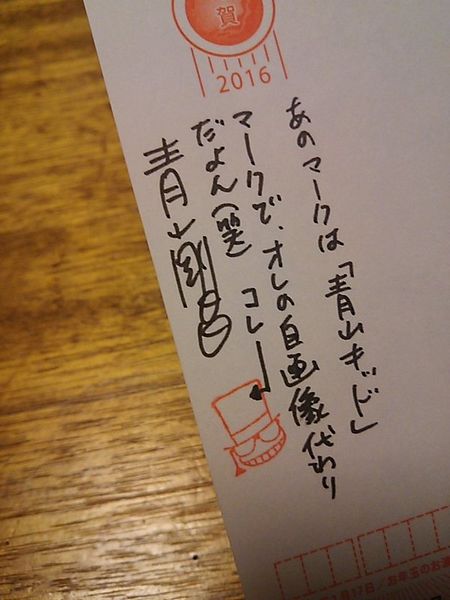 賀
2016
あのマークは「青山キッド」
マークで、オレの自画像代わり
だよん（笑） コレ
青山剛昌